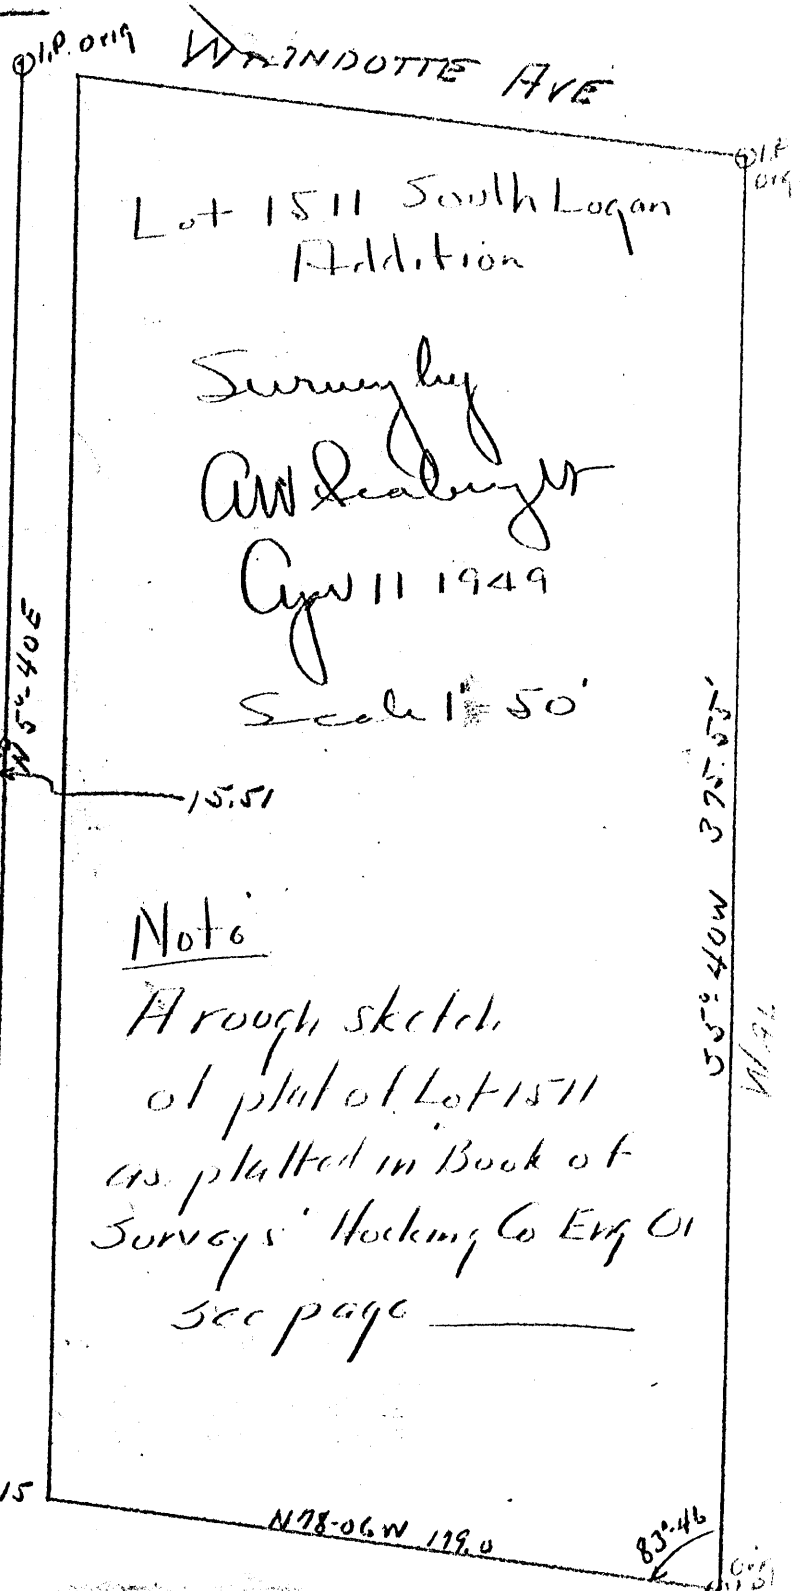 I.P. orig
WYANDOTTE AVE
I.P.
orig
Lot 1511 South Logan
Addition
Survey by
AW Seabright
Apr 11 1949
Scale 1"= 50'
N 5°-40 E
15.51
S 5°-40 W 375.55'
Note
A rough sketch
of plat of Lot 1511
as platted in Book of
Surveys' Hocking Co Eng Of
see page
15
N 78-06 W 179.0
83°-46